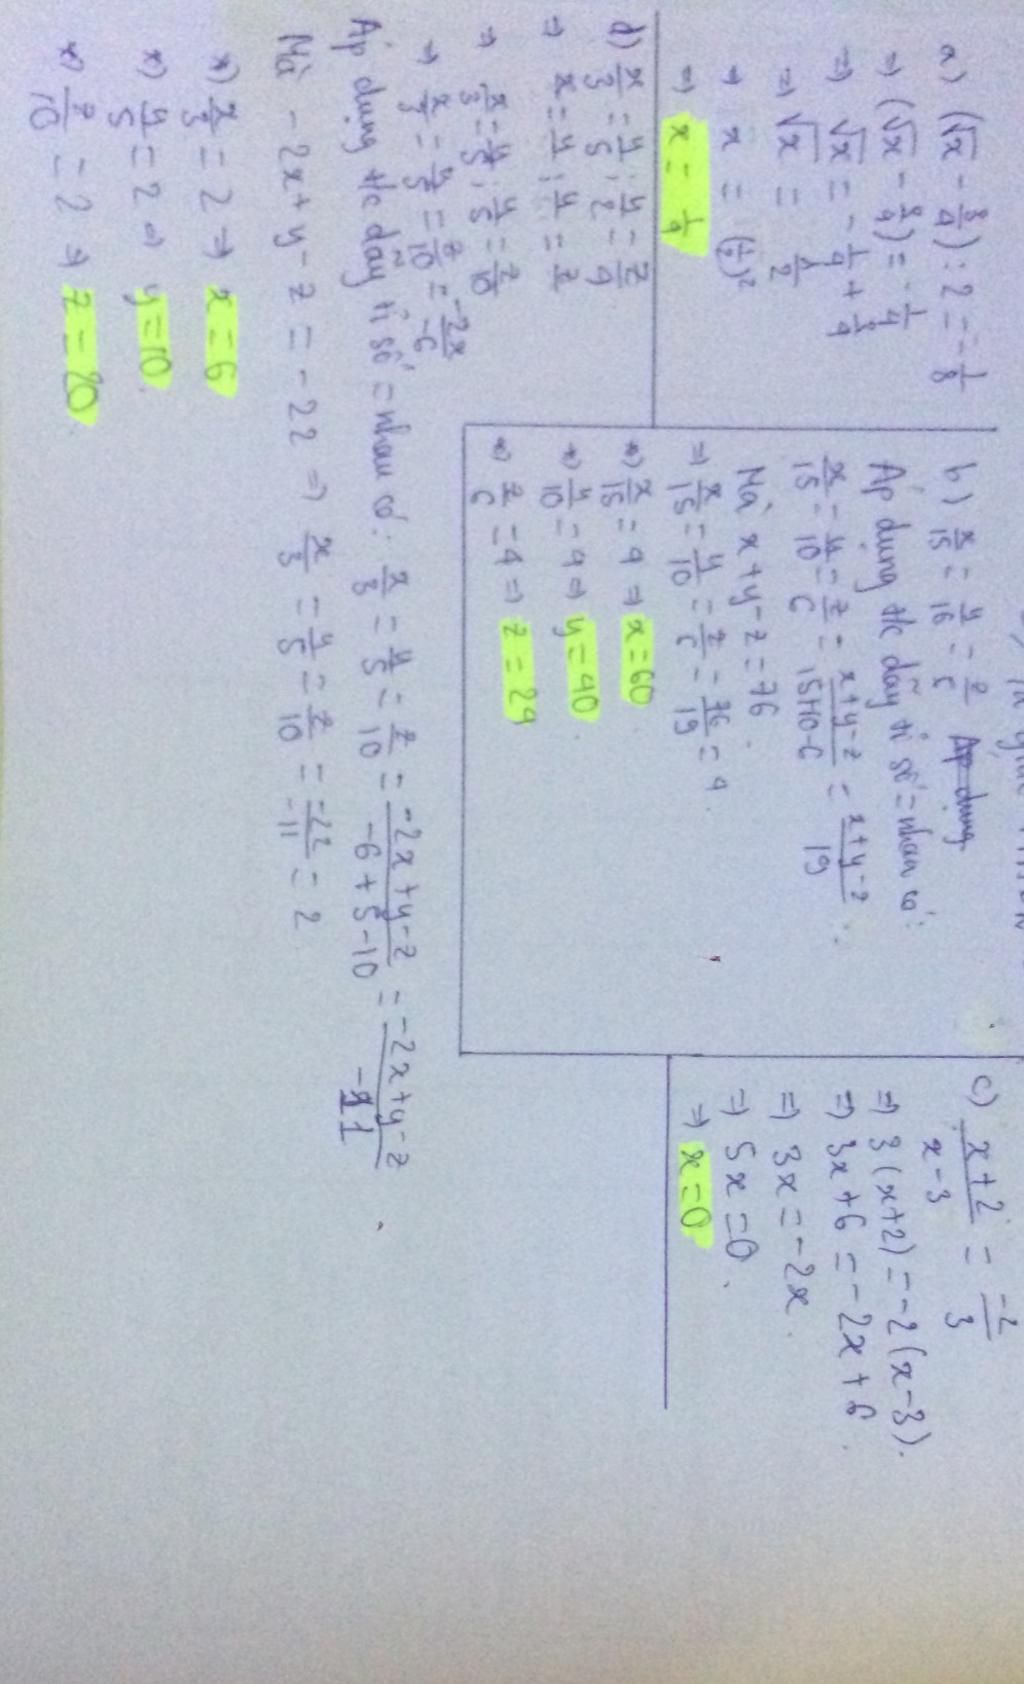 a) (√x - 3/4) : 2 = -1/8
⇒ (√x - 3/4) = -1/4
⇒ √x = -1/4 + 3/4
⇒ √x = 1/2
⇒ x = (1/2)²
⇒ x = 1/4
b) x/15 = y/10 = z/6
Áp dụng t/c dãy tỉ số = nhau có:
x/15 = y/10 = z/6 = x+y-z/15+10-6 = x+y-z/19
Mà x+y-z = 76.
⇒ x/15 = y/10 = z/6 = 76/19 = 4.
*) x/15 = 4 ⇒ x = 60
*) y/10 = 4 ⇒ y = 40
*) z/6 = 4 ⇒ z = 24
c) x+2/x-3 = -2/3
⇒ 3(x+2) = -2(x-3).
⇒ 3x+6 = -2x+6.
⇒ 3x = -2x.
⇒ 5x = 0.
⇒ x = 0.
d) x/3 = y/5 ; y/2 = z/4
⇒ x/3 = y/5 ; y/5 = z/10
⇒ x/3 = y/5 = z/10 = -2x/-6
Áp dụng t/c dãy tỉ số = nhau có: x/3 = y/5 = z/10 = -2x+y-z/-6+5-10 = -2x+y-z/-11
Mà -2x+y-z = -22 ⇒ x/3 = y/5 = z/10 = -22/-11 = 2
*) x/3 = 2 ⇒ x = 6
*) y/5 = 2 ⇒ y = 10.
*) z/10 = 2 ⇒ z = 20.